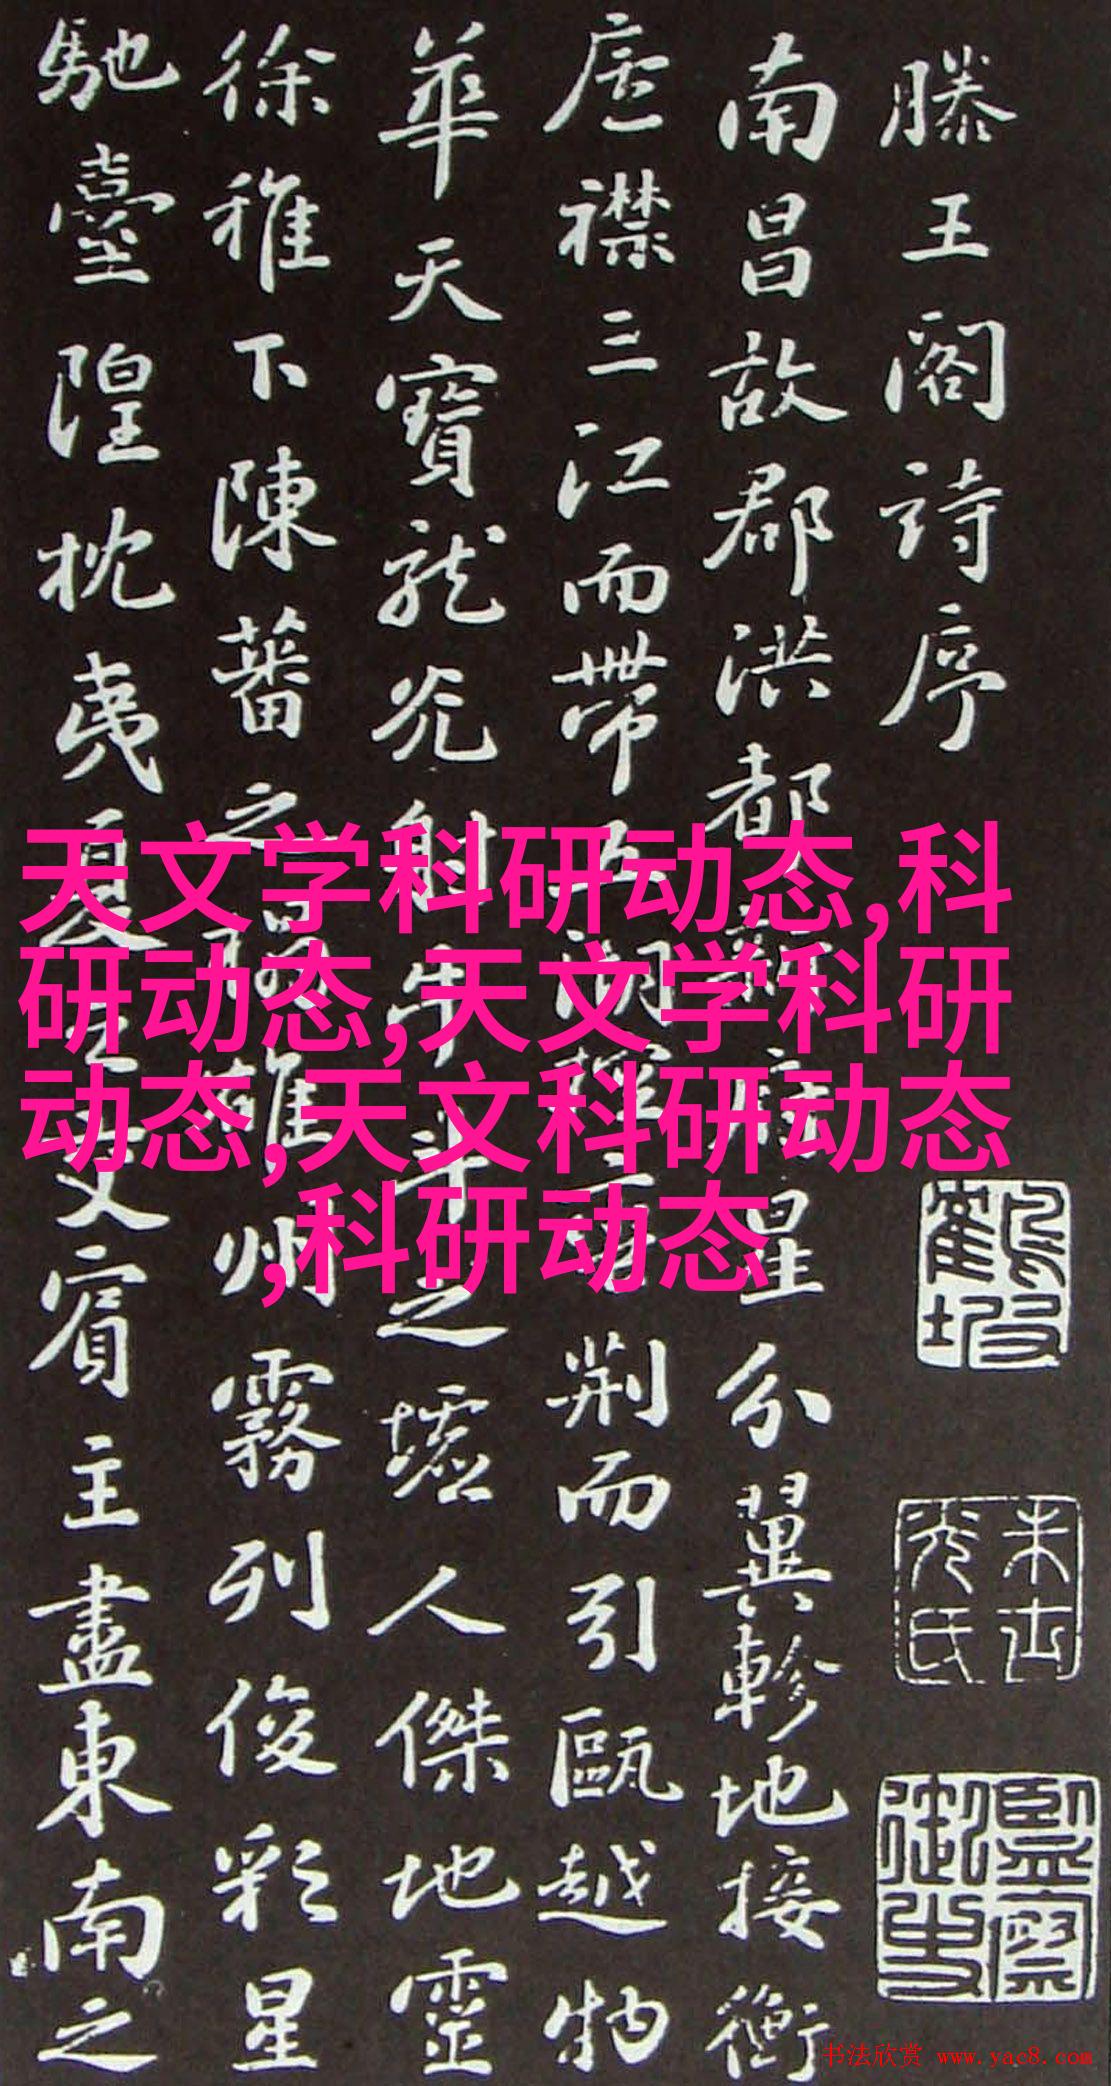 滕王閣詩序
南昌故郡洪都新府星分翼軫地接衡
廬襟三江而帶五湖控蠻荆而引甌越物
華天寶龍光射牛斗之墟人傑地靈
徐稚下陳蕃之榻雄州霧列俊彩星
馳臺隍枕夷夏之交賓主盡東南之
天文学科研动态,科
研动态,天文学科研
动态,天文科研动态
,科研动态
书法欣赏 www.yac8.com